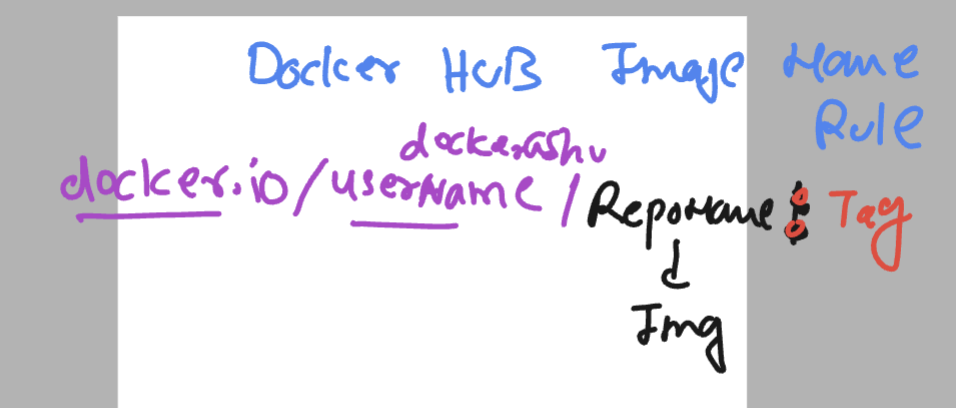 Docker HUB Image Name
Rule
dockerashu
docker.io/userName/RepoName:Tag
Img